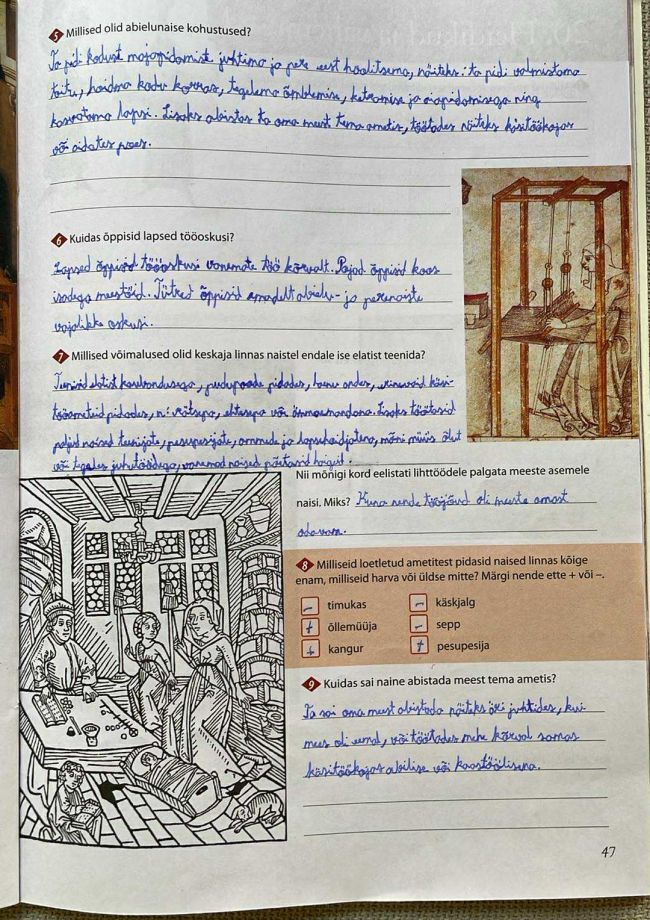 5 Millised olid abielunaise kohustused?
Ta pidi kodust majapidamist juhtima ja pere eest hoolitsema, näiteks: ta pidi valmistama
toitu, hoidma kodu korras, tegelema õmblemise, ketramise ja aiapidamisega ning
kasvatama lapsi. Lisaks abistas ta oma meest tema ametis, töötades näiteks käsitöökojas
või aidates poes.
6 Kuidas õppisid lapsed tööoskusi?
Lapsed õppisid tööoskusi vanemate töö kõrvalt. Pojad õppisid koos
isadega meestöid. Tütred õppisid emadelt abielu- ja perenaiste
vajalikke oskusi.
7 Millised võimalused olid keskaja linnas naistel endale ise elatist teenida?
Teenisid elatist kaubandusega, pudupoode pidades, laenu andes, erinevaid käsi-
tööameteid pidades, n: rätsepa, ehtesepa või ämmaemandana. Lisaks töötasid
paljud naised teenijate, pesupesijate, ammede ja lapsehoidjatena, mõni müüs õlut
või tegeles juhutöödega, vanemad naised põetasid haigeid.
Nii mõnigi kord eelistati lihttöödele palgata meeste asemele
naisi. Miks? Kuna nende tööjõud oli meeste omast
odavam.
8 Milliseid loetletud ametitest pidasid naised linnas kõige
enam, milliseid harva või üldse mitte? Märgi nende ette + või –.
– timukas – käskjalg
+ õllemüüja – sepp
+ kangur + pesupesija
9 Kuidas sai naine abistada meest tema ametis?
Ta sai oma meest abistada näiteks äri juhtides, kui
mees oli eemal, või töötades mehe kõrval samas
käsitöökojas abilise või kaastöölisena.
47